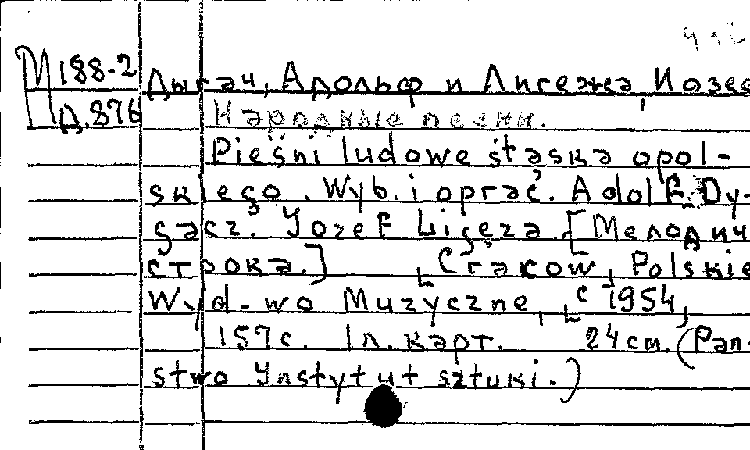 М188-2
Д.876
Дыгач, Адольф и Лигежа, Иозеф
Народные песни.
Pieśni ludowe śląska opol-
skiego. Wyb. i oprać. Adolf Dy-
gacz. Yozef Ligęza. [Мелодич
строка.] [Craków, Polskie
Wyd-wo Muzyczne, [c 1954,
157с. 1л. карт. 24см. (Pan-
stwo Ynstytut sztuki.)